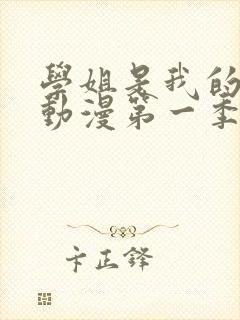 學姐是我的
動漫第一季
卞正鋒